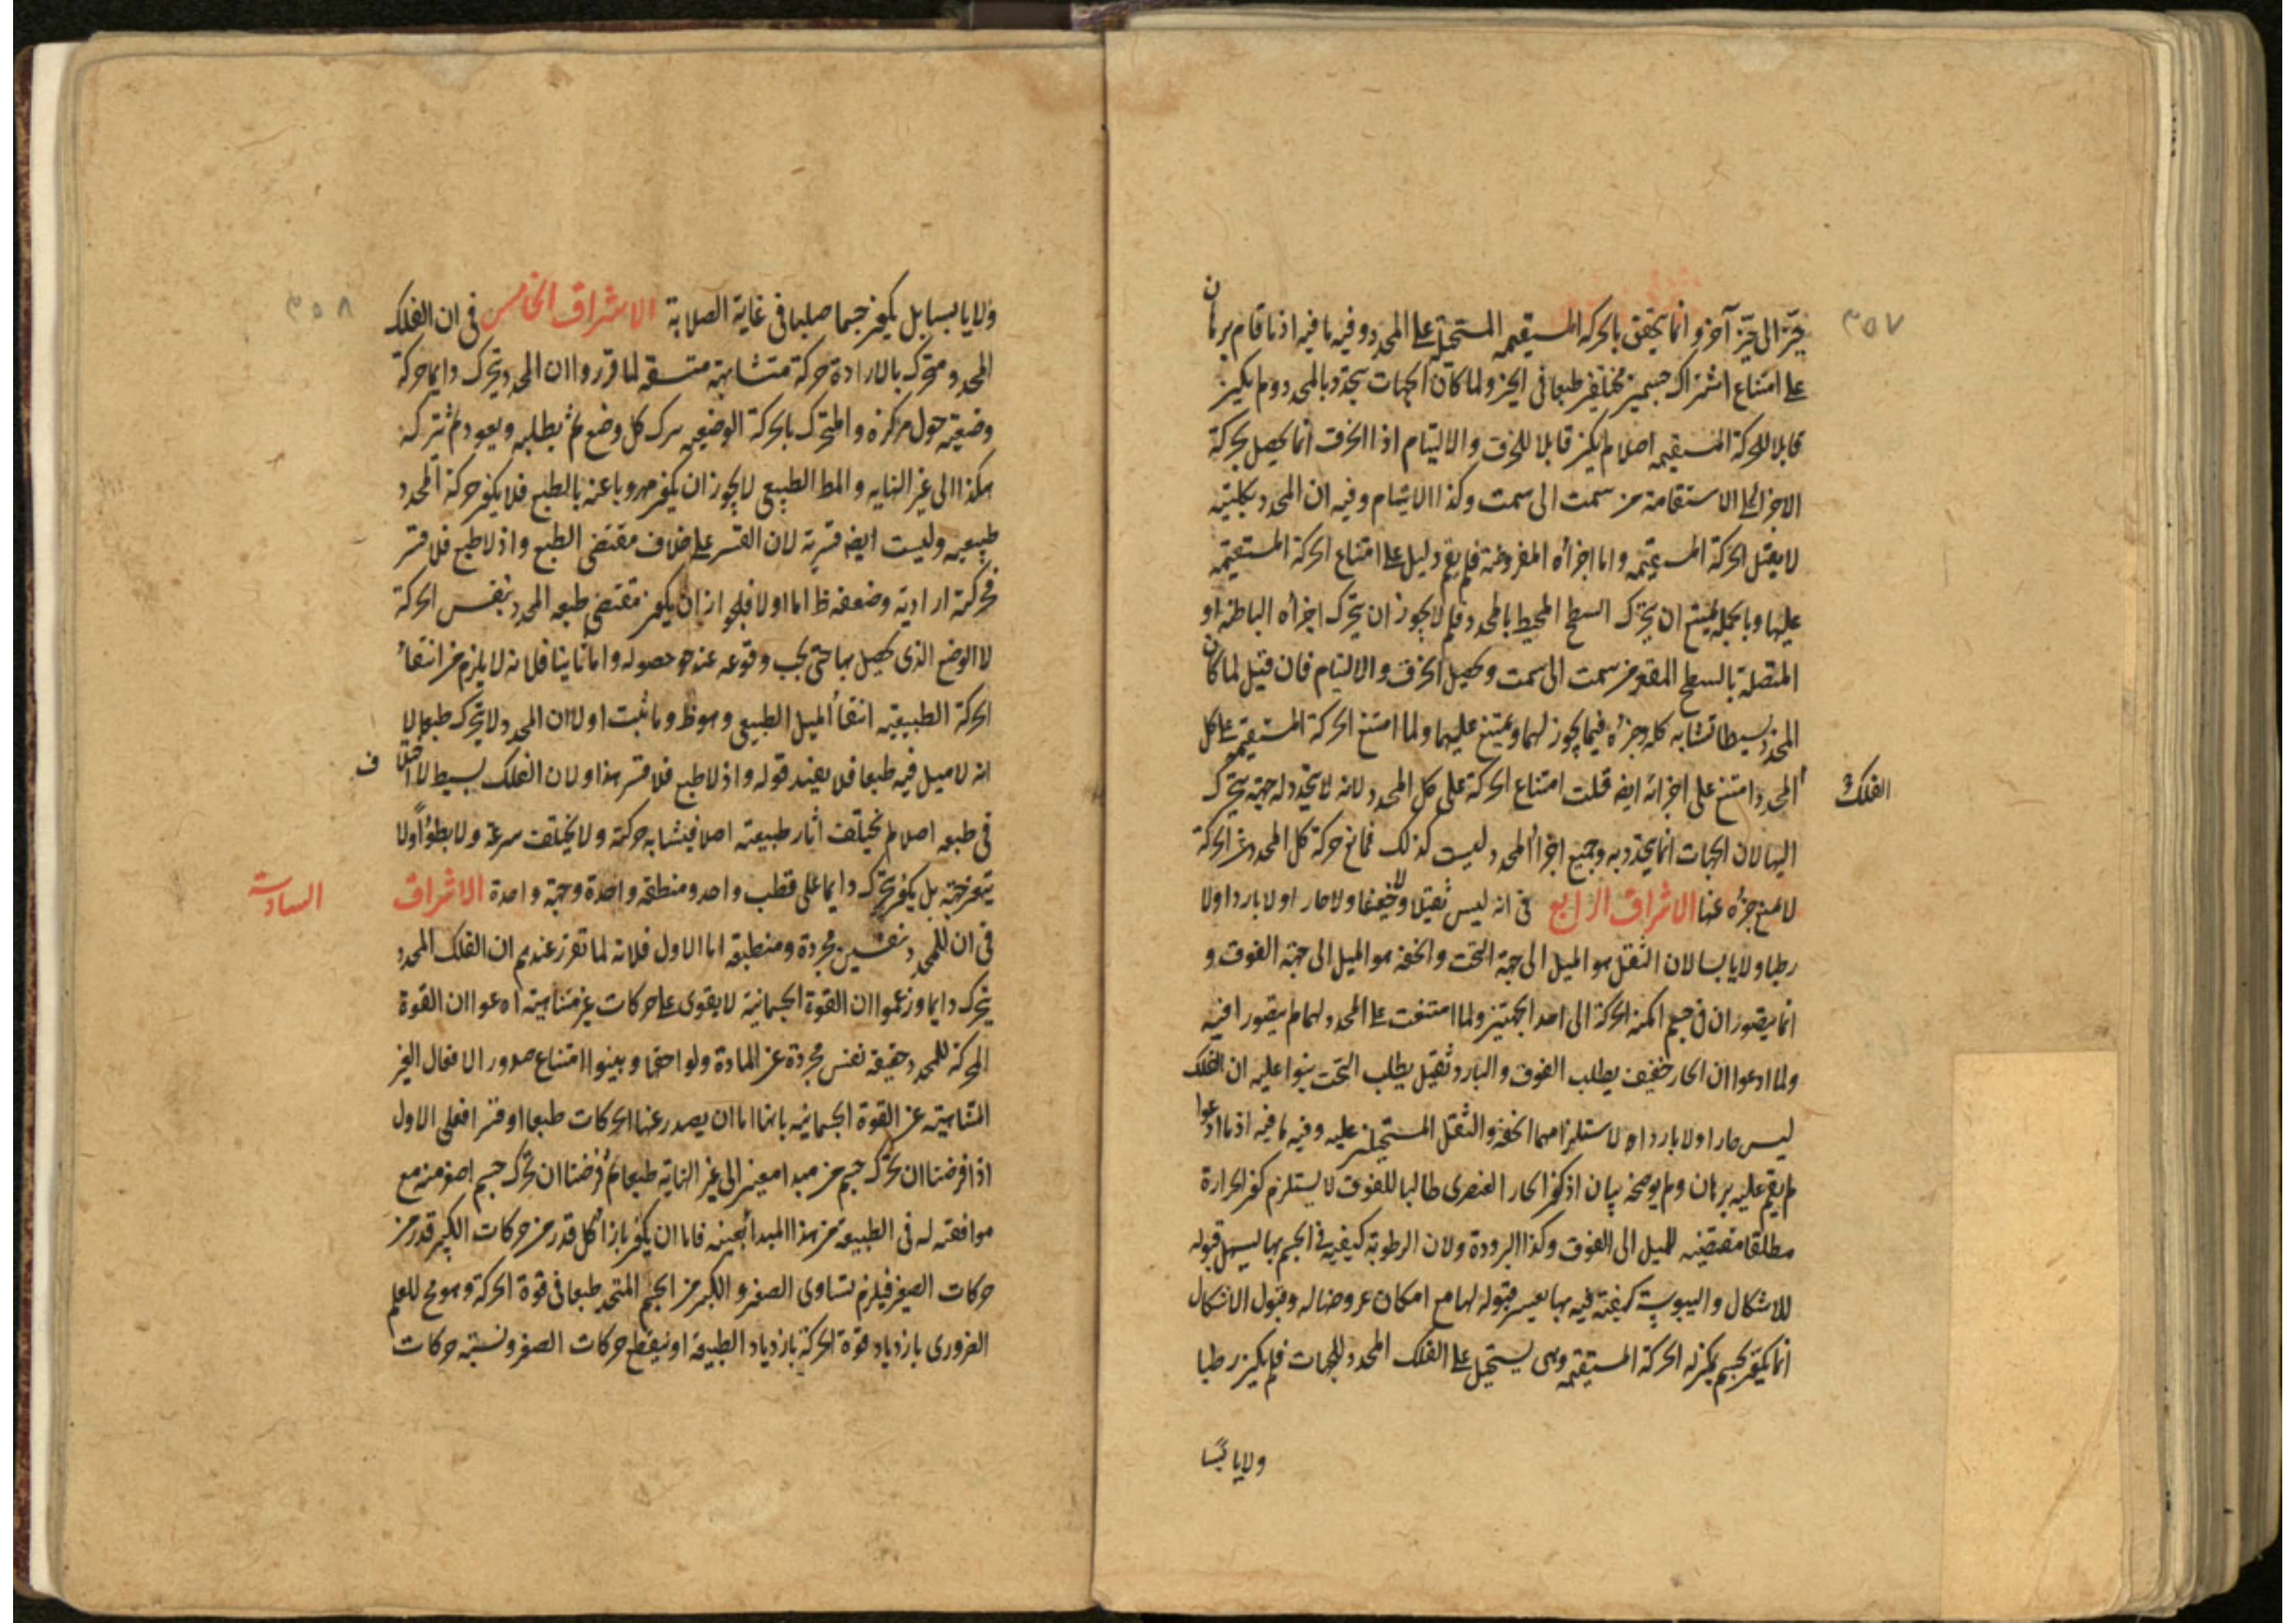 ٣٥٧
حيز الى حيز آخر وانما يتحقق بالحركة المستقيمه المستحيلة على المحدد وفيه ما فيه اذ ما قام برهان
على امتناع اشتراك جسمين مختلفين طبعا فى الحيز ولما كان الجهات يتحدد بالمحدد ولم يكن
قابلا للحركة المستقيمه اصلا لم يكن قابلا للخرق والالتيام اذ الخرق انما يحصل بحركة
الاجزا على الاستقامة من سمت الى سمت وكذا الالتيام وفيه ان المحدد بكليته
لا يقبل الحركة المستقيمه واما اجزاؤه المفروضة فلم يقم دليل على امتناع الحركة المستقيمه
عليها وبالجملة يمتنع ان يتحرك السطح المحيط بالمحدد فلم لا يجوز ان يتحرك اجزاؤه الباطنة او
المتصلة بالسطح المقعر من سمت الى سمت ويحصل الخرق والالتيام فان قيل لما كان
المحدد بسيطا تشابه كله وجزءه فيما يجوز لهما ويمتنع عليهما ولما امتنع الحركة المستقيمه على كل
الفلك
المحدد امتنع على اجزائه ايضه قلت امتناع الحركة على كل المحدد لانه لا يتحدد له جهة يتحرك
اليها لان الجهات انما يتحدد به وجميع اجزاء المحدد ليست كذلك فمانع حركة كل المحدد عن الحركة
لا يمنع جزءه عنها الاشراق الرابع فى انه ليس ثقيلا ولا خفيفا ولا حار اولا باردا ولا
رطبا ولا يابسا لان الثقل هو الميل الى جهة التحت والخفة هو الميل الى جهة الفوق و
انما يتصوران فى جسم امكنه الحركة الى احد الجهتين ولما امتنعت على المحدد لهما لم يتصورا فيه
ولما ادعوا ان الحار خفيف يطلب الفوق والبارد ثقيل يطلب التحت بنوا عليه ان الفلك
ليس حارا ولا باردا لاستلزامهما الخفة والثقل المستحيلين عليه وفيه ما فيه اذ ما ادعوا
لم يقم عليه برهان ولم يوضحه بيان اذ كون الحار العنصرى طالبا للفوق لا يستلزم كون الحرارة
مطلقا مقتضيه للميل الى الفوق وكذا البرودة ولان الرطوبة كيفية فى الجسم بها يسهل قبوله
للاشكال واليبوسة كيفية فيه بها يعسر قبوله لها مع امكان عروضها له وقبول الاشكال
انما يكون لجسم يمكن له الحركة المستقيمه وهى يستحيل على الفلك المحدد للجهات فلم يكن رطبا
ولا يابسا
٣٥٨
ولا يابسا بل يكون جسما صلبا فى غاية الصلابة الاشراق الخامس فى ان الفلك
المحدد متحرك بالارادة حركة متشابهة متسقه لما قرروا ان المحدد يتحرك دايما حركة
وضعيه حول مركزه والمتحرك بالحركة الوضعيه يترك كل وضع ثم يطلبه ويعود ثم تتركه
هكذا الى غير النهايه والمط الطبيعى لا يجوز ان يكون مهروبا عنه بالطبع فلا يكون حركة المحدد
طبيعيه وليست ايضه قسرية لان القسر على خلاف مقتضى الطبع واذ لا طبع فلا قسر
فحركته ارادية وضعفه ظ اما اولا فلجواز ان يكون مقتضى طبعه المحدد بنفس الحركة
لا الوضع الذى يحصل بها حتى يجب وقوعه عند حصوله واما ثانيا فلانه لا يلزم من انتفاء
الحركة الطبيعيه انتفاء الميل الطبيعى وهو ظ وما ثبت اولا ان المحدد لا يتحرك طبعا لا
انه لا ميل فيه طبعا فلا يفيد قوله واذ لا طبع فلا قسر هذا ولان الفلك بسيط لا اختلاف
فى طبعه اصلا لم يختلف اثار طبيعته اصلا فيتشابه حركته ولا يختلف سرعة ولا بطؤا ولا
يتغير جهة بل يكون يتحرك دايما على قطب واحد ومنطقه واحدة وجهة واحدة الاشراق
السادس
فى ان للمحدد نفسين مجردة ومنطبقة اما الاول فلانه لما تقرر عندهم ان الفلك المحدد
يتحرك دايما وزعموا ان القوة الجسمانية لا يقوى على حركات غير متناهية ادعوا ان القوة
المحركة للمحدد حقيقة نفس مجردة عن المادة ولواحقها وبينوا امتناع صدور الافعال الغير
المتناهية عن القوة الجسمانيه بانها اما ان يصدر عنها الحركات طبعا او قسرا فعلى الاول
اذا فرضنا ان تحرك جسم من مبدا معين الى غير النهاية طبعا ثم فرضنا ان تحرك جسم اصغر منه مع
موافقته له فى الطبيعة من هذا المبدأ بعينه فاما ان يكون بازاء كل قدر من حركات الكبير قدر من
حركات الصغير فيلزم تساوى الصغير والكبير من الجسم المتحد طبعا فى قوة الحركة وهو مح للعلم
الضرورى بازدياد قوة الحركة بازدياد الطبيعة او ينقطع حركات الصغر ونسبة حركات